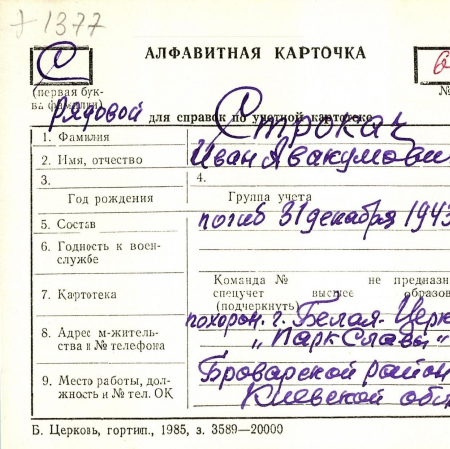 +1377
АЛФАВИТНАЯ КАРТОЧКА
С
б
(первая бук-
ва фамилии)
№
рядовой
для справок по учетной картотеке
1. Фамилия Строкач
2. Имя, отчество Иван Авакумови
3.
Год рождения
4.
Группа учета
5. Состав погиб 31 декабря 1943
6. Годность к воен-
службе
7. Картотека
Команда № не предназн
спецучет высшее образов
(подчеркнуть)
похорон. г. Белая-Церк
8. Адрес м-жительства и № телефона
„Парк Славы"
9. Место работы, дол-
жность и № тел. ОК
Броварской район
Киевской обл
Б. Церковь, гортип., 1985, з. 3589—20000